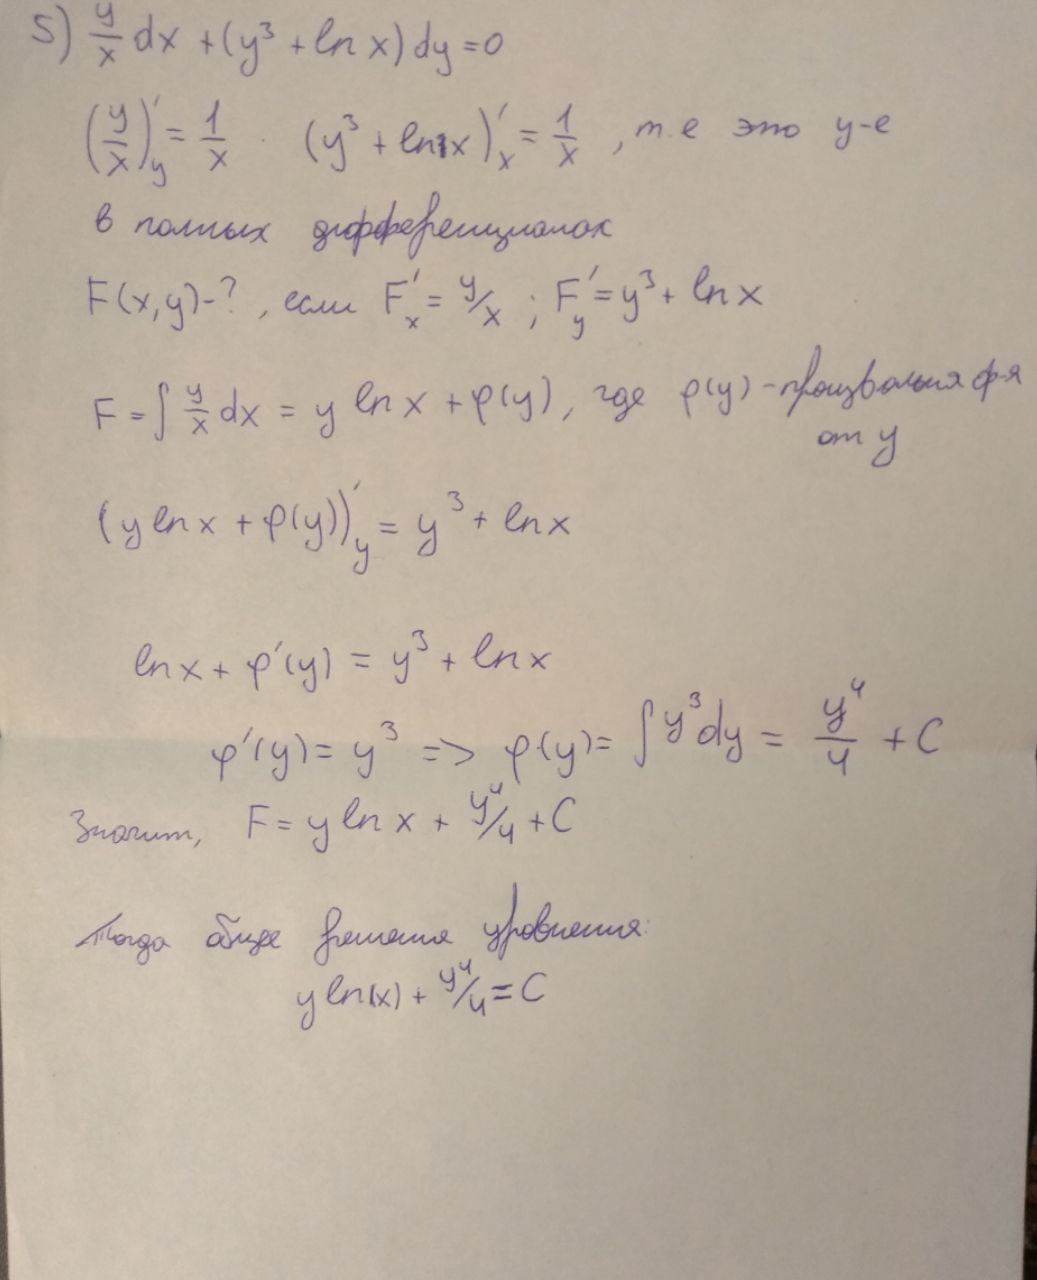 5) y/x dx + (y³ + ln x) dy = 0
(y/x)'y = 1/x (y³ + ln x)'x = 1/x , т.е это у-е
в полных дифференциалах
F(x,y)-? , если F'x = y/x ; F'y = y³ + ln x
F = ∫ y/x dx = y ln x + φ(y), где φ(y) - произвольная ф-я
от y
(y ln x + φ(y))'y = y³ + ln x
ln x + φ'(y) = y³ + ln x
φ'(y) = y³ => φ(y) = ∫ y³ dy = y⁴/4 + C
Значит, F = y ln x + y⁴/4 + C
Тогда общее решения уравнения:
y ln(x) + y⁴/4 = C